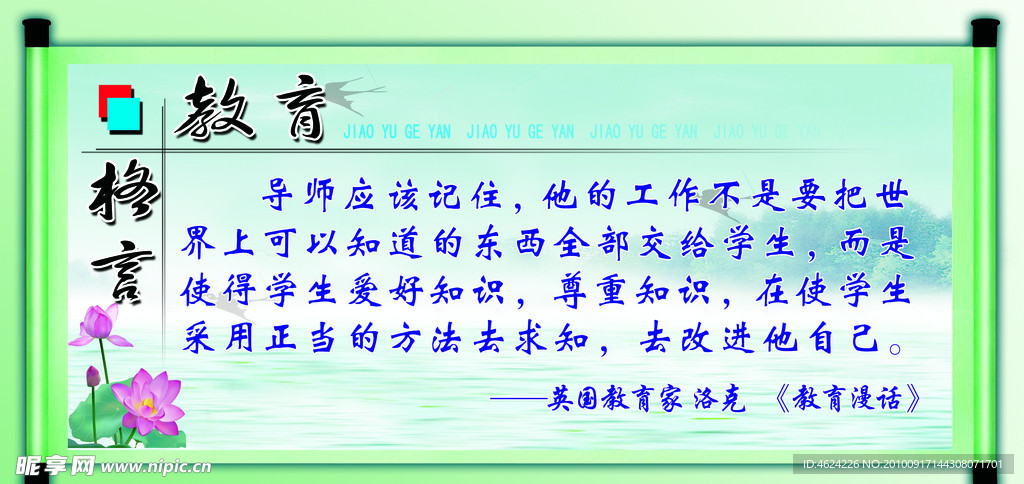 教育
格言
JIAO YU GE YAN JIAO YU GE YAN JIAO YU GE YAN JIAO YU GE YAN
导师应该记住，他的工作不是要把世
界上可以知道的东西全部交给学生，而是
使得学生爱好知识，尊重知识，在使学生
采用正当的方法去求知，去改进他自己。
——英国教育家 洛克 《教育漫话》
昵享网 www.nipic.cn
ID:4624226 NO:20100917144308071701